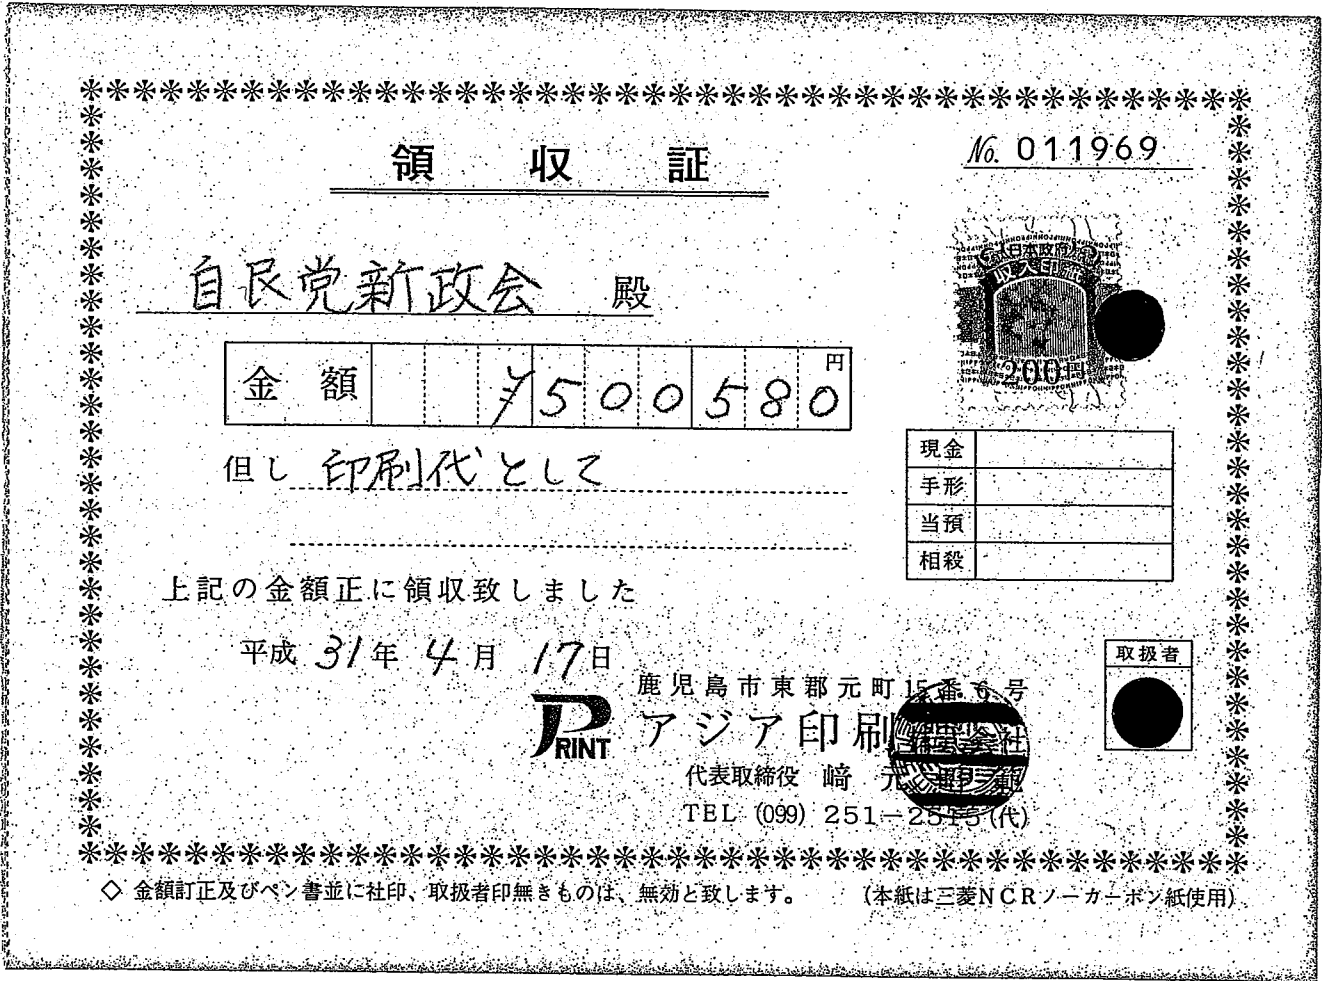 領収証
No. 011969
自民党新政会 殿
日本政府
収入印紙
200円
金額 ¥500580円
但し 印刷代として
現金
手形
当預
相殺
上記の金額正に領収致しました
平成 31年 4月 17日
取扱者
鹿児島市東郡元町15番6号
PRINT
アジア印刷株式会社
代表取締役 﨑元
TEL (099) 251-2515(代)
◇ 金額訂正及びペン書並に社印、取扱者印無きものは、無効と致します。 (本紙は三菱NCRノーカーボン紙使用)